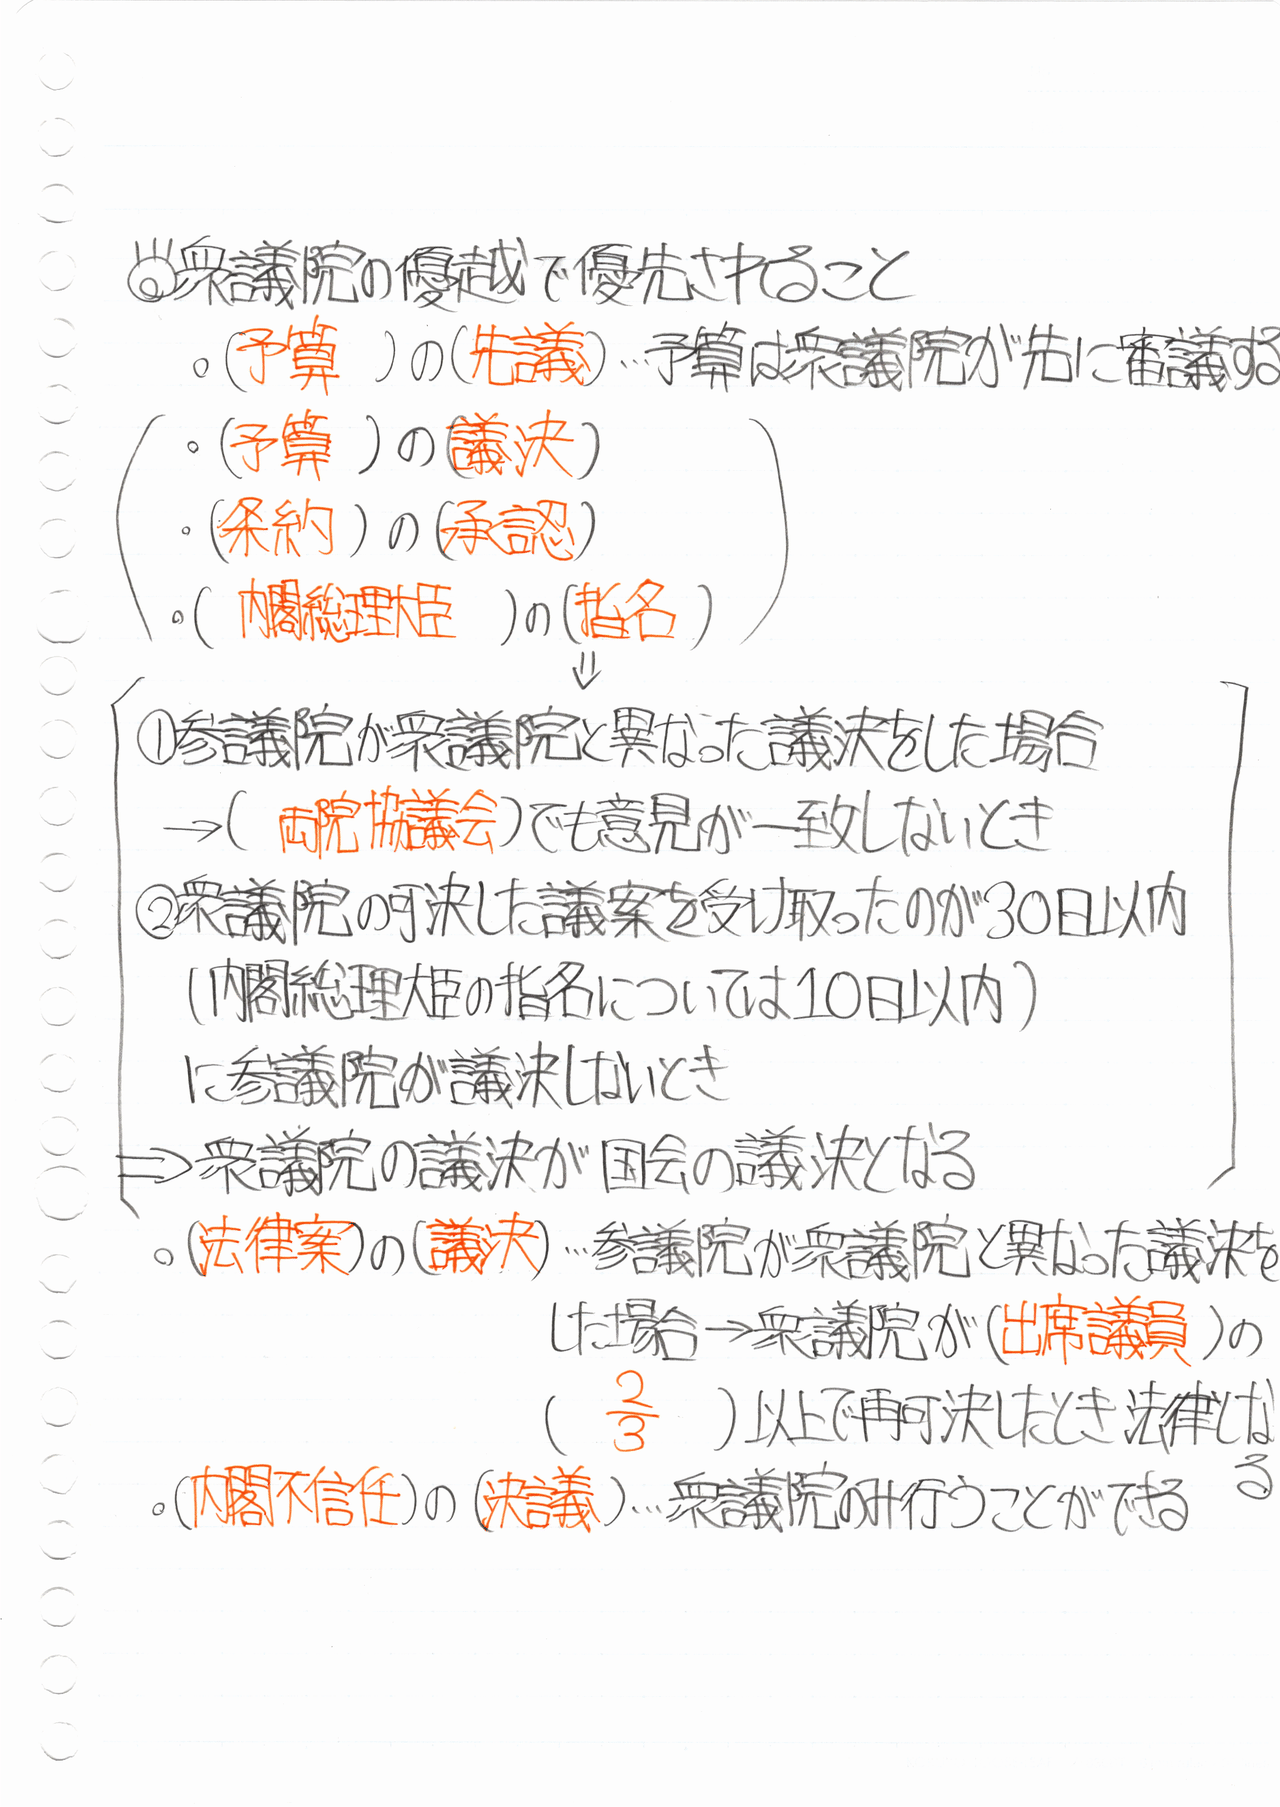 ◎衆議院の優越で優先されること
。(予算 )の(先議)…予算は衆議院が先に審議する
。(予算 )の(議決)
。(条約 )の(承認)
。( 内閣総理大臣 )の(指名 )
⇓
①参議院が衆議院と異なった議決をした場合
→( 両院協議会)でも意見が一致しないとき
②衆議院の可決した議案を受け取ったのが30日以内
(内閣総理大臣の指名については10日以内)
に参議院が議決しないとき
⇒衆議院の議決が国会の議決となる
。(法律案)の(議決)…参議院が衆議院と異なった議決を
した場合→衆議院が(出席議員 )の
( 2/3 )以上で再可決したとき法律とな
る
。(内閣不信任)の(決議)…衆議院のみ行うことができる